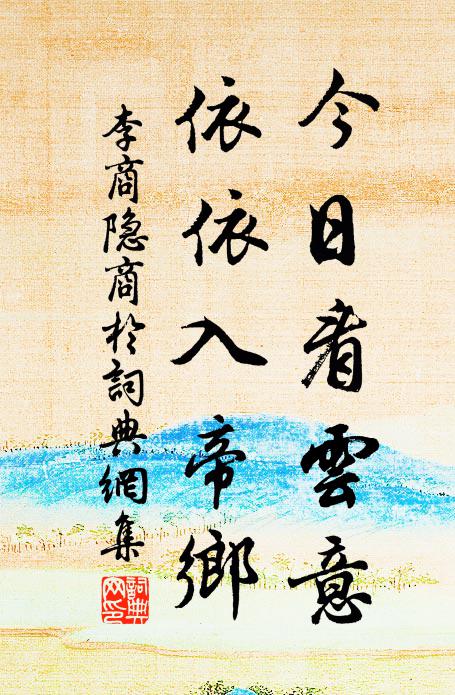 今日看雲意
依依入帝鄉
李商隐商於詞典網集
詞典網印